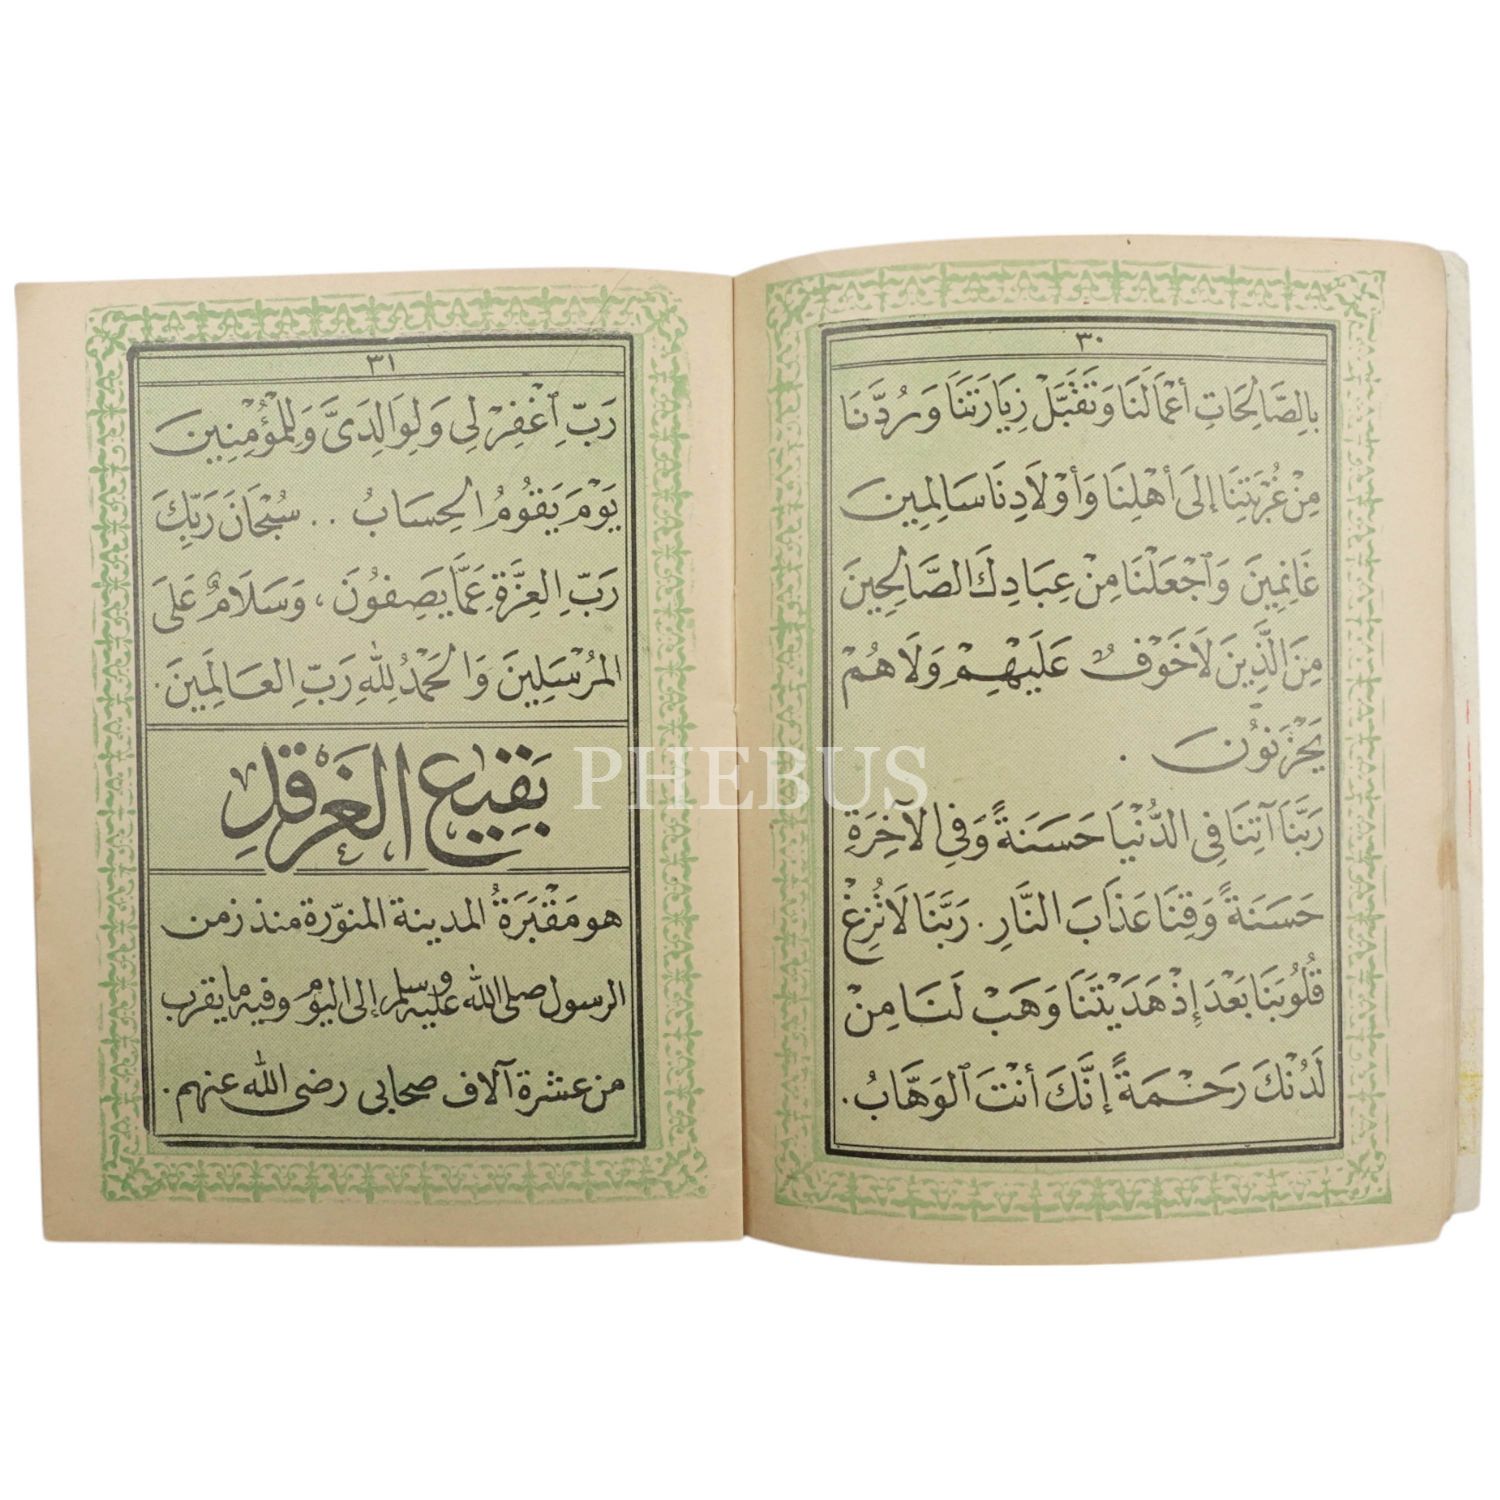 ٣٠
بِالصَّالِحَاتِ أَعْمَالَنَا وَتَقَبَّلْ زِيَارَتَنَا وَرُدَّنَا
مِنْ غُرْبَتِنَا إِلَى أَهْلِنَا وَأَوْلَادِنَا سَالِمِينَ
غَانِمِينَ وَاجْعَلْنَا مِنْ عِبَادِكَ الصَّالِحِينَ
مِنَ الَّذِينَ لَا خَوْفٌ عَلَيْهِمْ وَلَا هُمْ
يَحْزَنُونَ .
رَبَّنَا آتِنَا فِي الدُّنْيَا حَسَنَةً وَفِي الْآخِرَةِ
حَسَنَةً وَقِنَا عَذَابَ النَّارِ . رَبَّنَا لَا تُزِغْ
قُلُوبَنَا بَعْدَ إِذْ هَدَيْتَنَا وَهَبْ لَنَا مِنْ
لَدُنْكَ رَحْمَةً إِنَّكَ أَنْتَ الْوَهَّابُ .
٣١
رَبِّ اغْفِرْ لِي وَلِوَالِدَيَّ وَلِلْمُؤْمِنِينَ
يَوْمَ يَقُومُ الْحِسَابُ .. سُبْحَانَ رَبِّكَ
رَبِّ الْعِزَّةِ عَمَّا يَصِفُونَ ، وَسَلَامٌ عَلَى
الْمُرْسَلِينَ وَالْحَمْدُ لِلّٰهِ رَبِّ الْعَالَمِينَ .
بَقِيعُ الْغَرْقَدِ
هو مَقْبَرَةُ المدينة المنوّرة منذ زمن
الرسول صلى الله عليه وسلم إلى اليوم وفيه ما يقرب
من عشرة آلاف صحابي رضى الله عنهم .
PHEBUS